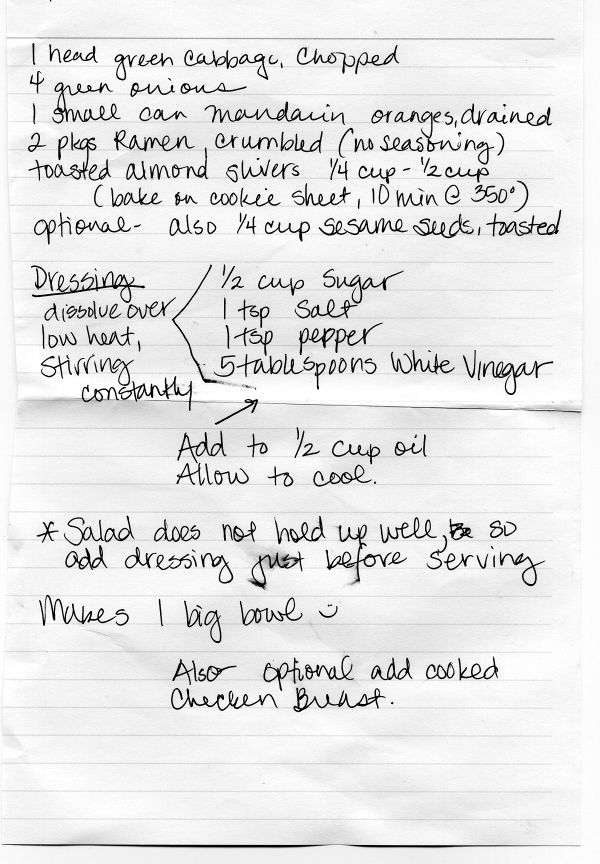 1 head green cabbage, chopped
4 green onions
1 small can mandarin oranges, drained
2 pkgs Ramen, crumbled (no seasoning)
toasted almond slivers 1/4 cup - 1/2 cup
(bake on cookie sheet, 10 min @ 350°)
optional - also 1/4 cup sesame seeds, toasted
Dressing
dissolve over
low heat,
stirring
constantly
1/2 cup Sugar
1 tsp Salt
1 tsp pepper
5 tablespoons White Vinegar
Add to 1/2 cup oil
Allow to cool.
* Salad does not hold up well, so
add dressing just before serving
Makes 1 big bowl
Also optional add cooked
Chicken Breast.